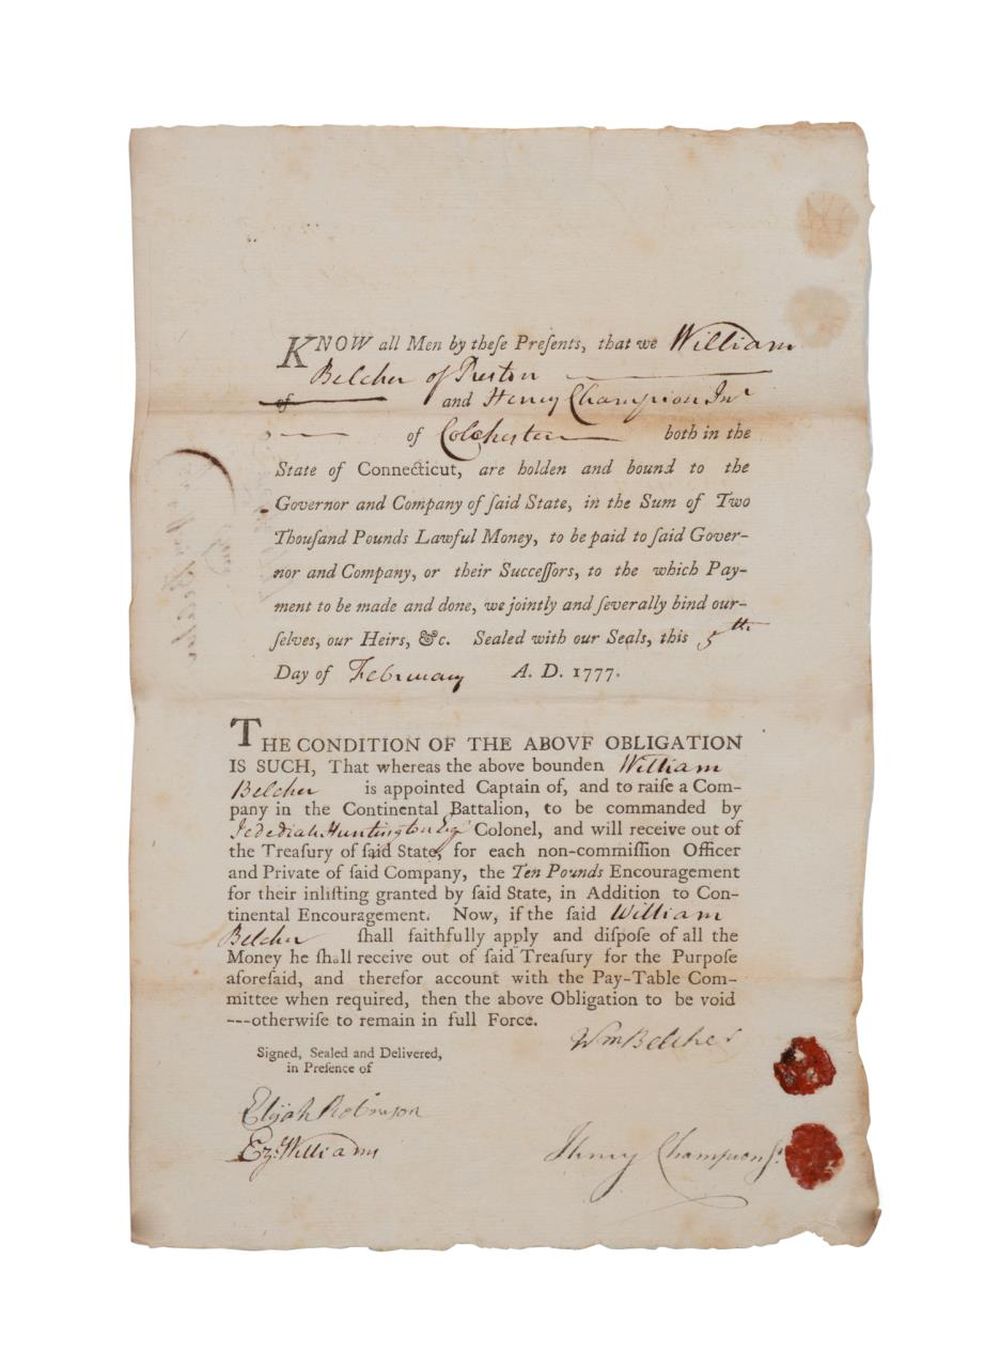 KNOW all Men by theſe Preſents, that we William
Belcher of Preston
of and Henry Champion Junr
of Colchester both in the
State of Connecticut, are holden and bound to the
Governor and Company of ſaid State, in the Sum of Two
Thouſand Pounds Lawful Money, to be paid to ſaid Gover-
nor and Company, or their Succeſſors, to the which Pay-
ment to be made and done, we jointly and ſeverally bind our-
ſelves, our Heirs, &c. Sealed with our Seals, this 5th
Day of February A. D. 1777.
THE CONDITION OF THE ABOVE OBLIGATION
IS SUCH, That whereas the above bounden William
Belcher is appointed Captain of, and to raiſe a Com-
pany in the Continental Battalion, to be commanded by
Jedediah Huntington Esqr Colonel, and will receive out of
the Treaſury of ſaid State, for each non-commiſſion Officer
and Private of ſaid Company, the Ten Pounds Encouragement
for their inliſting granted by ſaid State, in Addition to Con-
tinental Encouragement. Now, if the ſaid William
Belcher ſhall faithfully apply and diſpoſe of all the
Money he ſhall receive out of ſaid Treaſury for the Purpoſe
aforeſaid, and therefor account with the Pay-Table Com-
mittee when required, then the above Obligation to be void
---otherwiſe to remain in full Force.
Wm Belcher
Signed, Sealed and Delivered,
in Preſence of
Elijah Robinson
Ez. Williams
Henry Champion Jr